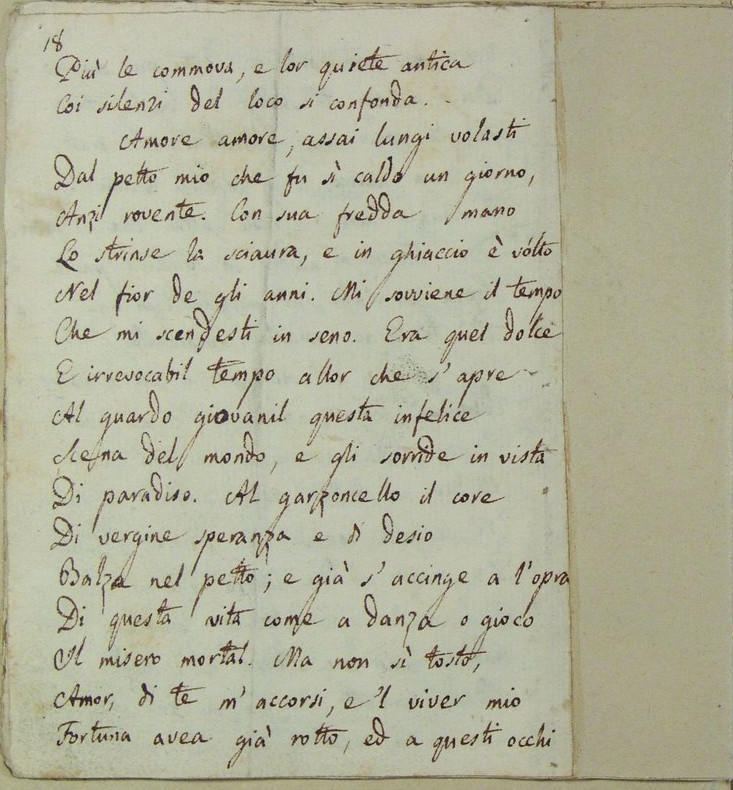 18
Più le commova, e lor quiete antica
Coi silenzi del loco si confonda.
Amore amore, assai lungi volasti
Dal petto mio che fu sì caldo un giorno,
Anzi rovente. Con sua fredda mano
Lo strinse la sciaura, e in ghiaccio è vólto
Nel fior de gli anni. Mi sovviene il tempo
Che mi scendesti in seno. Era quel dolce
E irrevocabil tempo allor che s'apre
Al guardo giovanil questa infelice
Scena del mondo, e gli sorride in vista
Di paradiso. Al garzoncello il core
Di vergine speranza e di desio
Balza nel petto; e già s'accinge a l'opra
Di questa vita come a danza o gioco
Il misero mortal. Ma non sì tosto,
Amor, di te m'accorsi, e 'l viver mio
Fortuna avea già rotto, ed a questi occhi